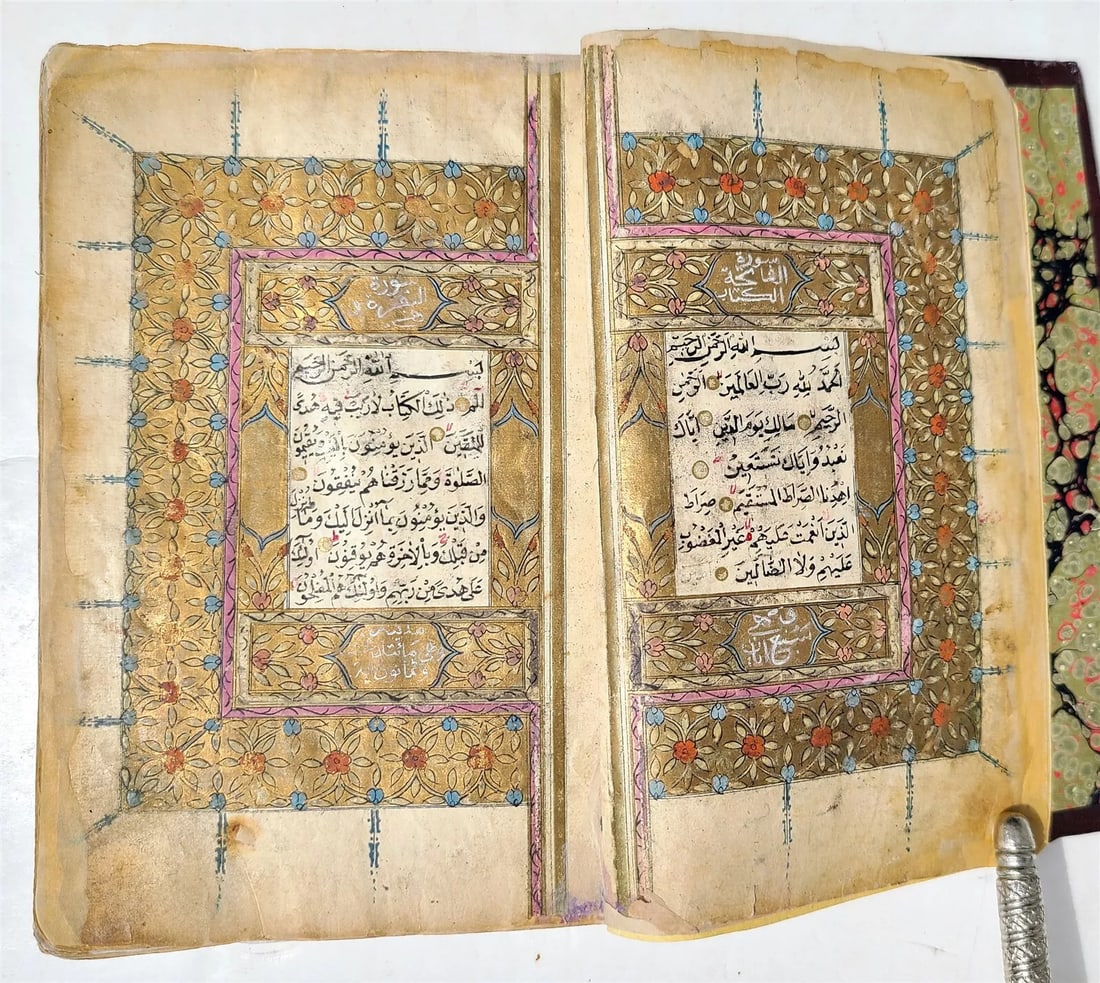 سورة
الفاتحة
الكتاب
بسم الله الرحمن الرحيم
الحمد لله رب العالمين الرحمن
الرحيم مالك يوم الدين اياك
نعبد واياك نستعين
اهدنا الصراط المستقيم صراط
الذين انعمت عليهم غير المغضوب
عليهم ولا الضالين
سبع ايات
سورة
البقرة
بسم الله الرحمن الرحيم
الم ذلك الكتاب لا ريب فيه هدى
للمتقين الذين يؤمنون بالغيب ويقيمون
الصلوة ومما رزقناهم ينفقون
والذين يؤمنون بما انزل اليك وما انزل
من قبلك وبالاخرة هم يوقنون اولئك
على هدى من ربهم واولئك هم المفلحون
مائتان
وثمانون